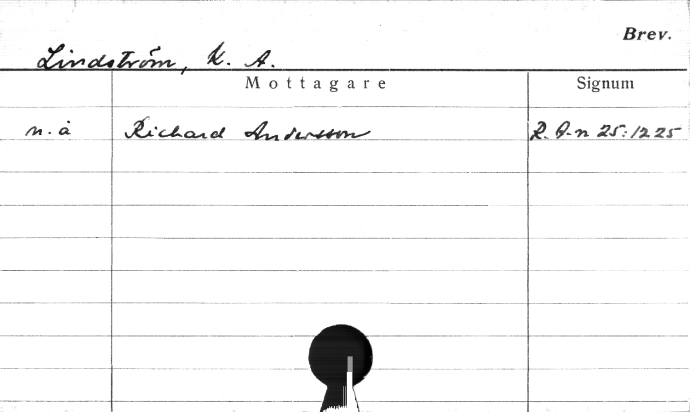 Brev.
Lindström, K. A.
Mottagare Signum
n. å Richard Andersson R. A-n 25:1225